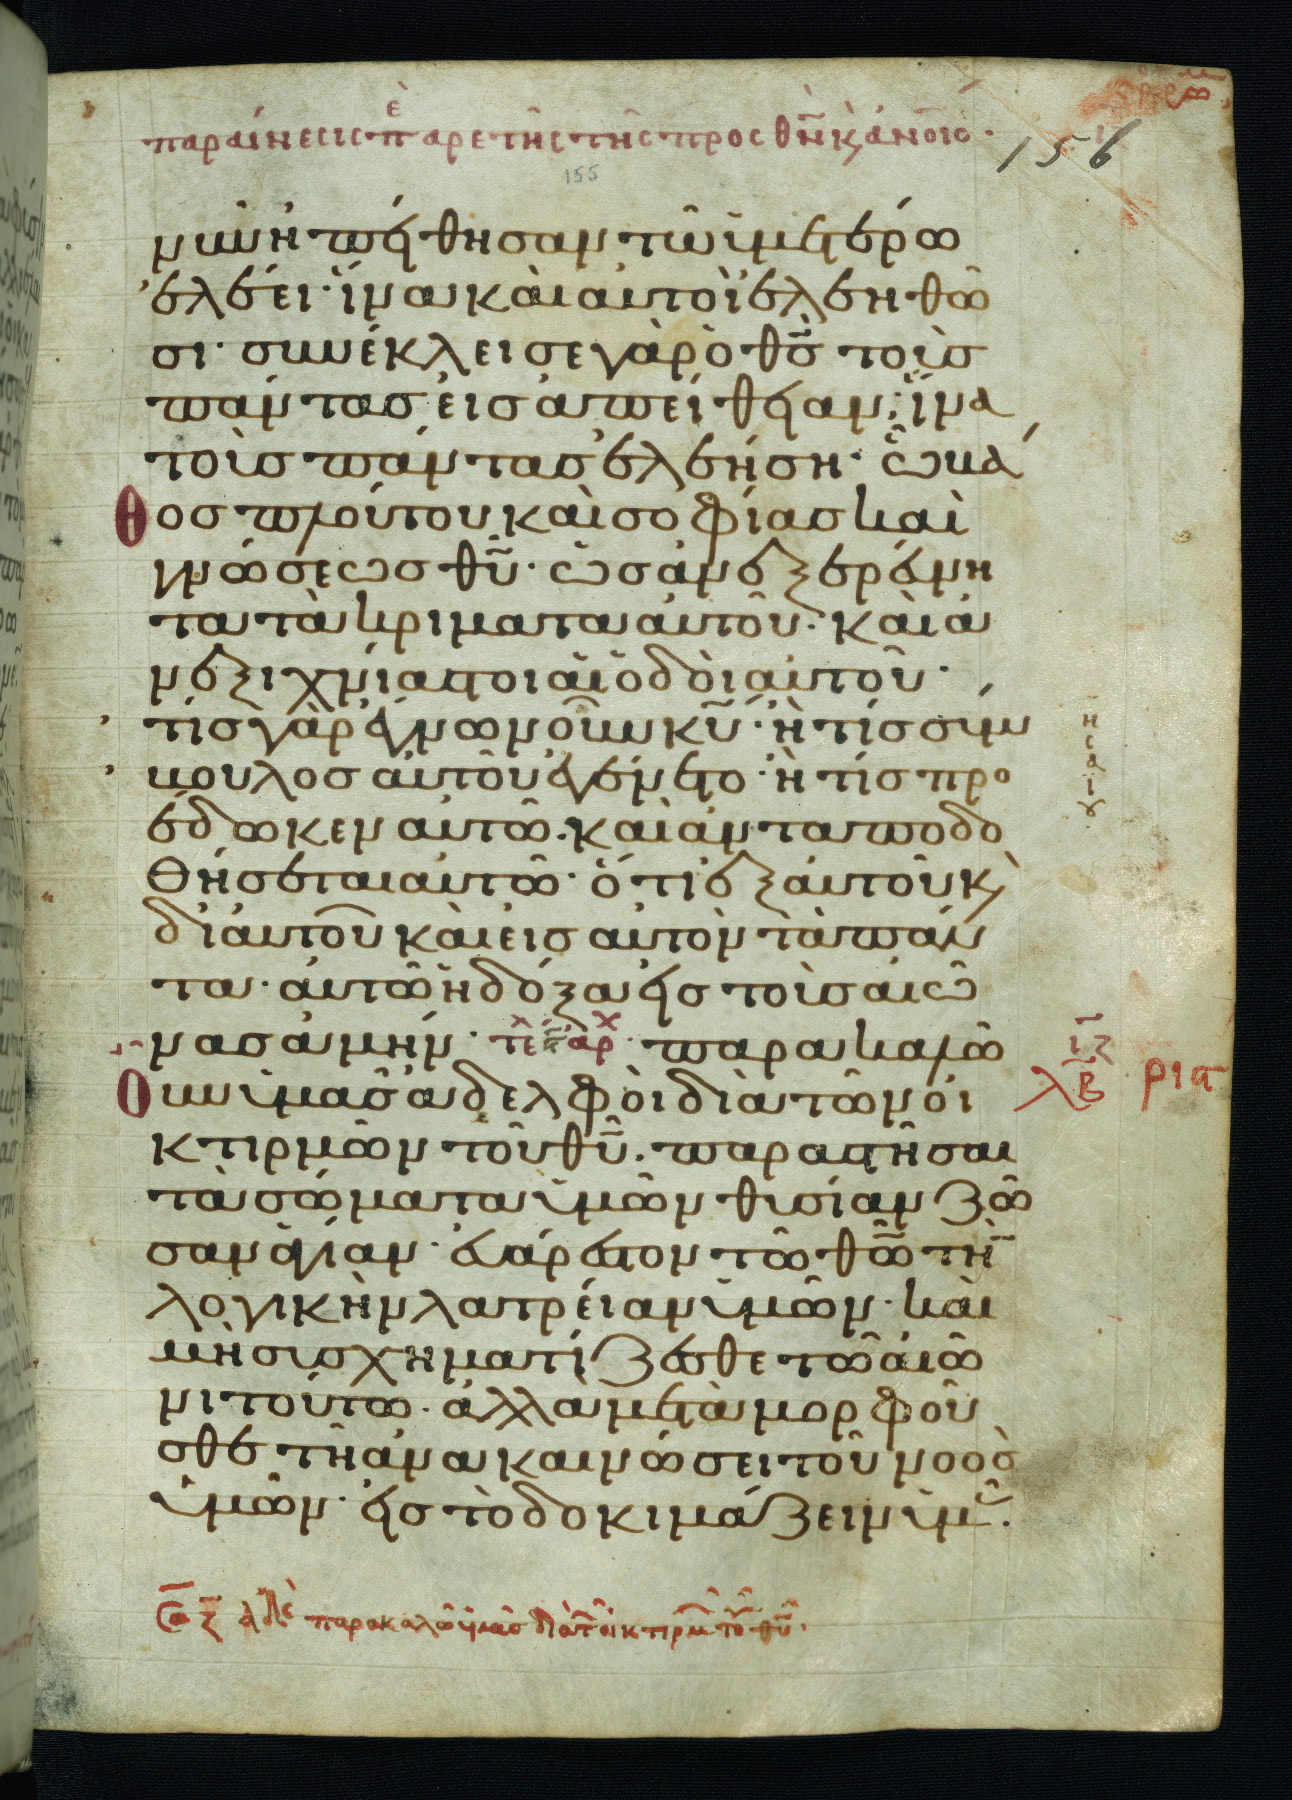 παραίνεσις π ὲ ἀρετῆς τῆς προς θ̅ν κ̀ ἀν̅οις.
156
155
νῦν ἠπείθησαν τῶ ὑμετέρω
ἐλέει· ἵνα καὶ αὐτοὶ ἐλεηθῶ
σι· συνέκλεισε γὰρ ὁ θ̅ς τοὺς
πάντας εἰς ἀπείθειαν· ἵνα
τοὺς πάντας ἐλεήση· ὦ βά
θος πλούτου καὶ σοφίας καὶ
γνώσεως θ̅υ· ὡς ἀνεξερεύνη
τα τὰ κρίματα αὐτοῦ· καὶ ἀ
νεξιχνίαστοι αἱ ὁδοὶ αὐτοῦ·
τίς γὰρ ἔγνω νοῦν κ̅υ· ἢ τίς σύμ
βουλος αὐτοῦ ἐγένετο· ἢ τίς προ
έδωκεν αὐτῶ· καὶ ἀνταποδο
θήσεται αὐτῶ· ὅτι ἐξ αὐτοῦ κ̀
δι αὐτοῦ καὶ εἰς αὐτὸν τὰ πάν
τα· αὐτῶ ἡ δόξα εἰς τοὺς αἰῶ
νας ἀμήν· τέ ἀρχ· παρακαλῶ
οὖν ὑμᾶς ἀδελφοὶ διὰ τῶν οἰ
κτιρμῶν τοῦ θ̅υ· παραστῆσαι
τὰ σώματα ὑμῶν θυσίαν ζῶ
σαν ἁγίαν· εὐάρεστον τῶ θ̅ω τὴ̅
λογικὴν λατρείαν ὑμῶν· καὶ
μὴ συσχηματίζεσθε τῶ αἰῶ
νι τούτω· ἀλλὰ μεταμορφοῦ
σθε τῆ ἀνακαινώσει τοῦ νοὸς
ὑμῶν· εἰς τὸ δοκιμάζειν ὑμ·
ησαιου
ιζ
λβ ρια
ἀδε παρακαλῶ ὑμᾶς διὰ τ οἰκτιρμ τοῦ θ̅υ·